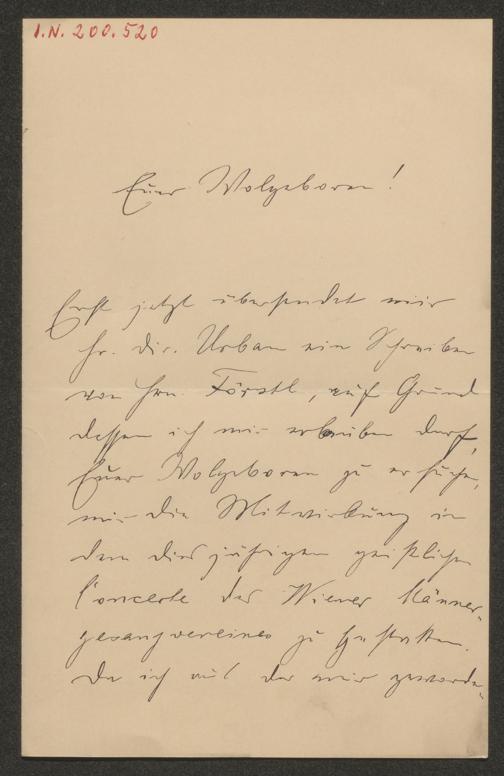 I.N. 200.520
Euer Wolgeboren!
Erst jetzt übersendet mir
Hr. Dir. Urban ein Schreiben
von Hrn. Förstl, auf Grund
dessen ich mir erlauben darf,
Euer Wolgeboren zu ersuchen,
mir die Mitwirkung in
dem diesjährigen geistlichen
Concerte des Wiener Männer-
gesangvereines zu gestatten.
Da ich aus der mir geworde-